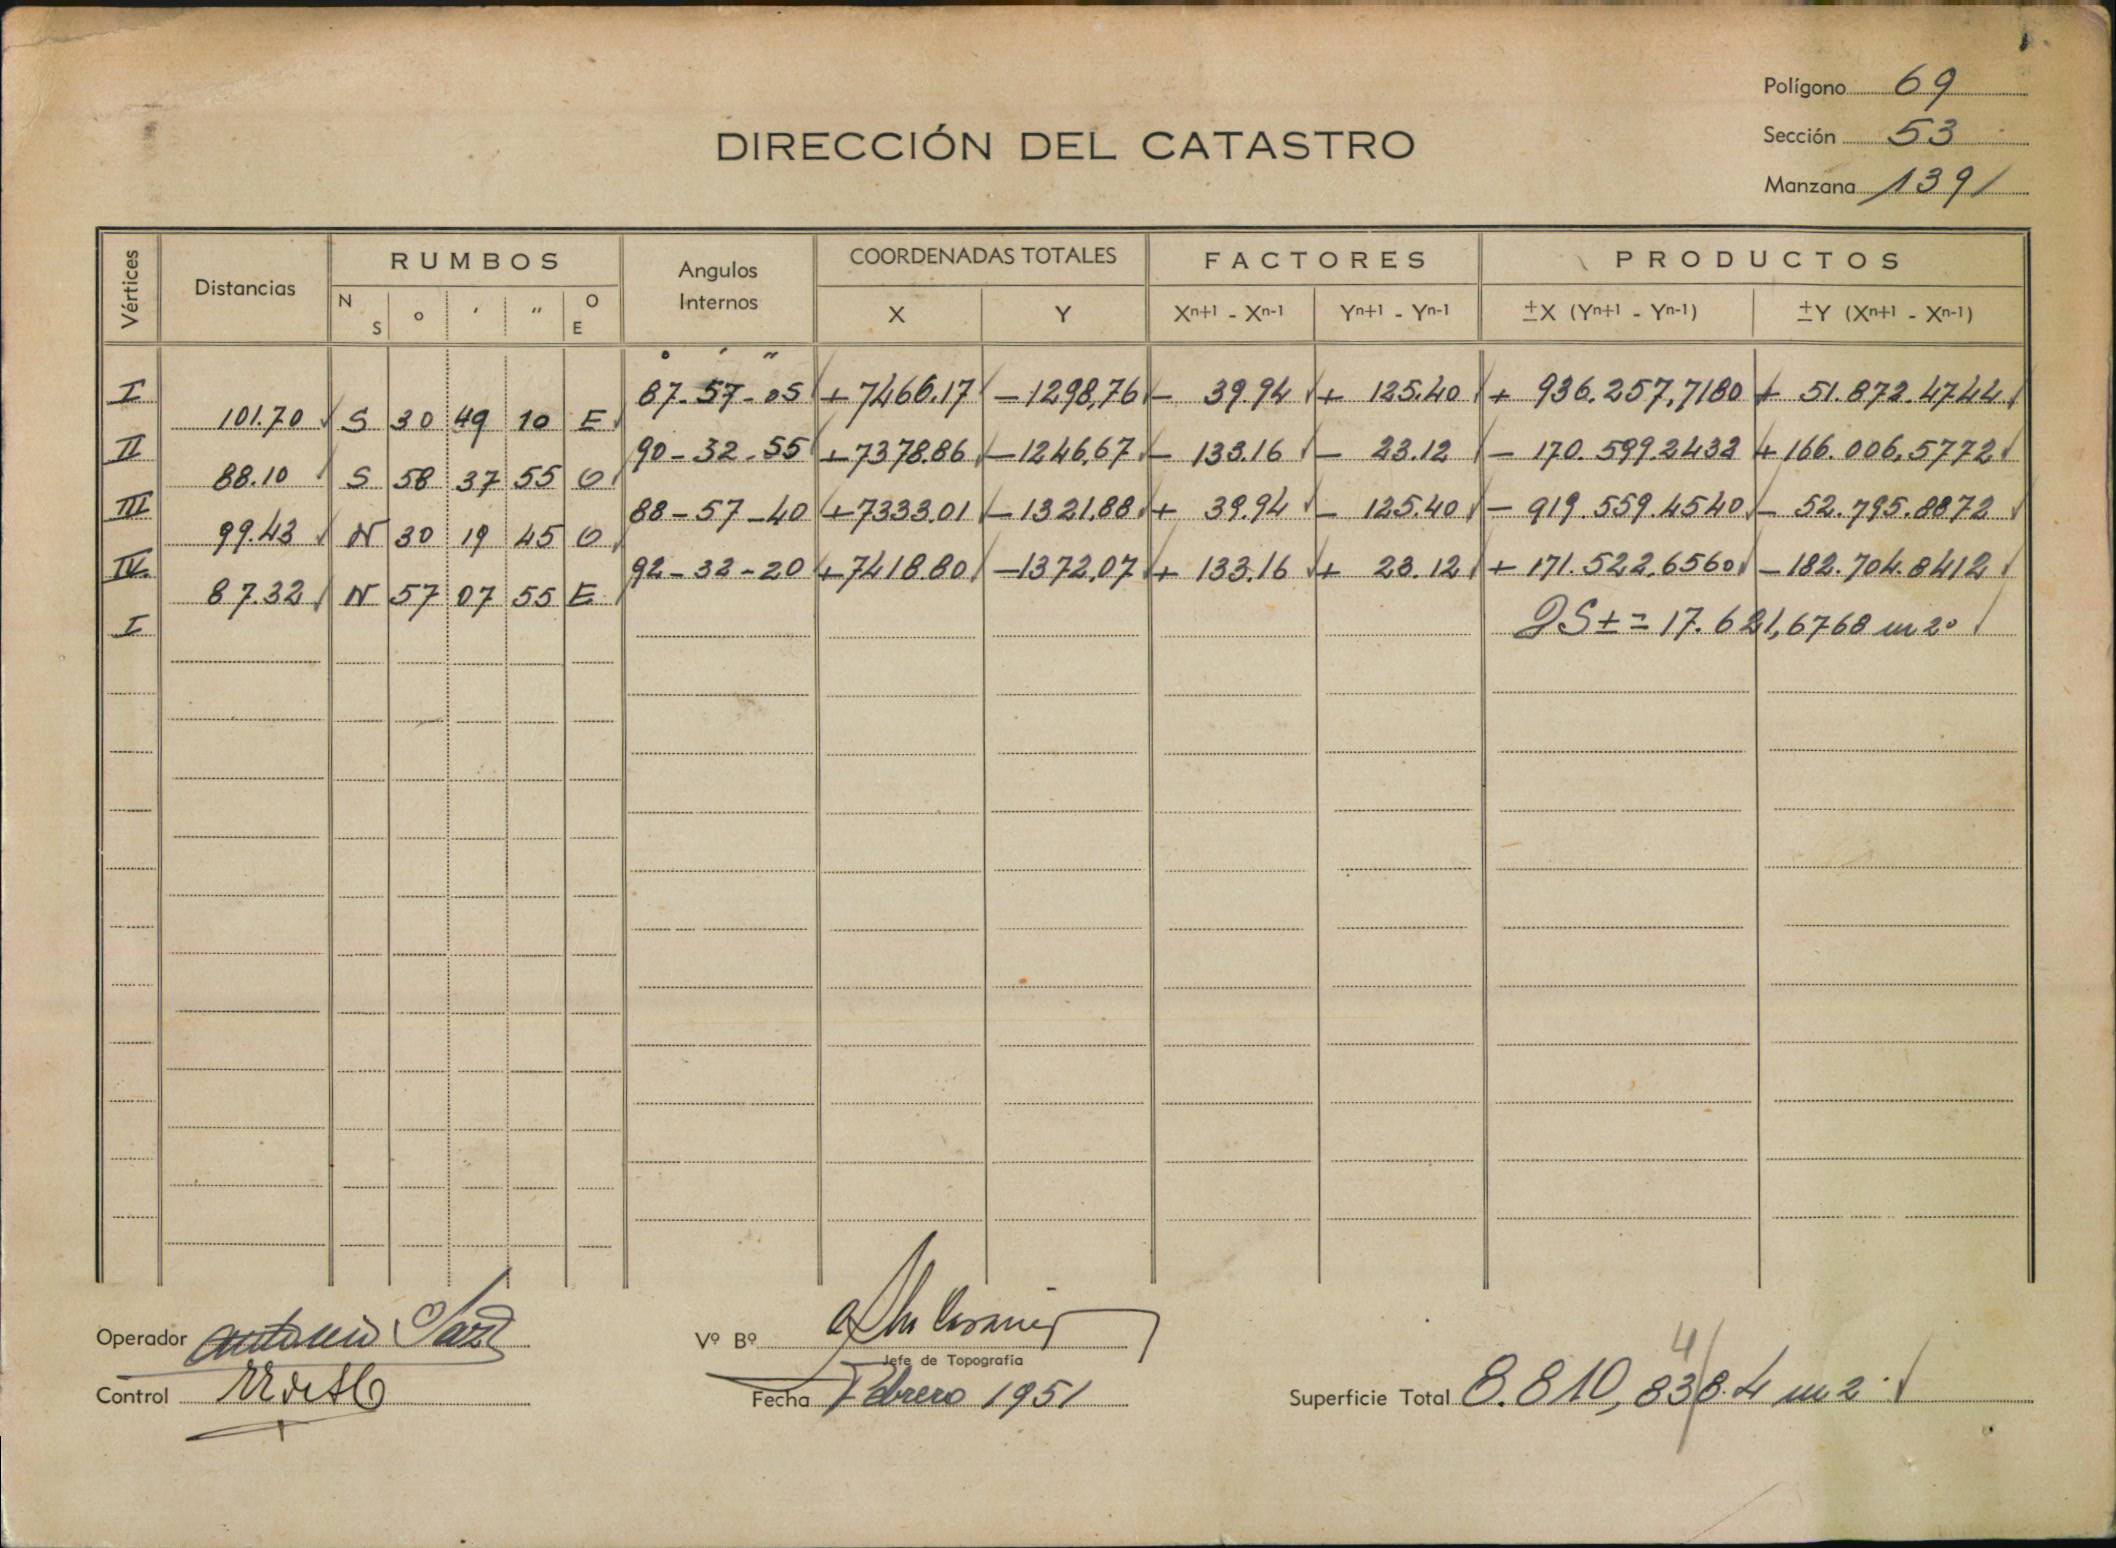 Polígono 69
DIRECCIÓN DEL CATASTRO
Sección 53
Manzana 1391
Vértices Distancias RUMBOS Angulos Internos COORDENADAS TOTALES FACTORES PRODUCTOS
N S ° ' " O E X Y Xn+1 - Xn-1 Yn+1 - Yn-1 ±X (Yn+1 - Yn-1) ±Y (Xn+1 - Xn-1)
° ' "
I 87-57-05 +7466.17 -1298,76 - 39.94 + 125.40 + 936.257,7180 + 51.872.4744
101.70 S 30 49 10 E
II 90-32-55 +7378.86 -1246,67 - 133.16 - 23.12 - 170.599.2432 +166.006,5772
88.10 S 58 37 55 O
III 88-57-40 +7333.01 -1321,88 + 39.94 - 125.40 - 919.559.4540 - 52.795.8872
99.43 N 30 19 45 O
IV. 92-32-20 +7418.80 -1372,07 + 133.16 + 23.12 + 171.522,6560 -182.704.8412
87.32 N 57 07 55 E
I 2S ± = 17.621,6768 m2.
Operador Antonio
Vº Bº
Jefe de Topografía
Control
Fecha Febrero 1951
Superficie Total 8.810,838.4 m2.
4